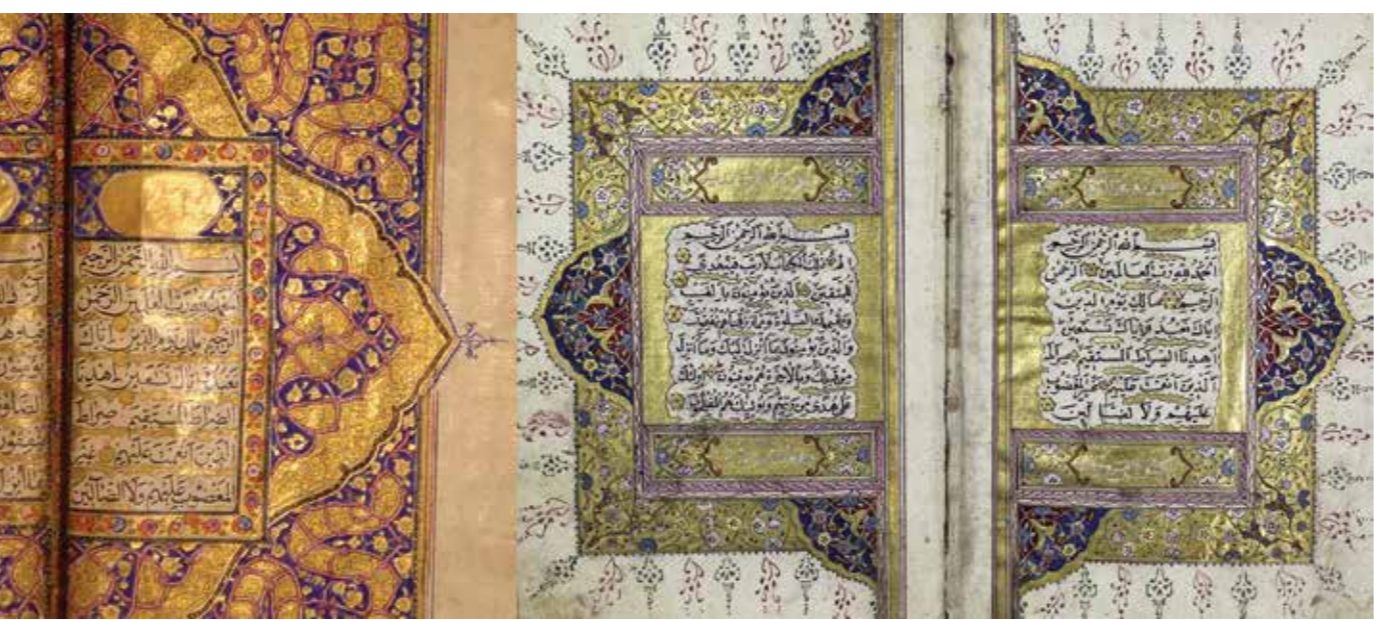 بسم الله الرحمن الرحيم
الحمد لله رب العالمين الرحمن
الرحيم مالك يوم الدين
اياك نعبد واياك نستعين
اهدنا الصراط المستقيم صراط
الذين انعمت عليهم غير المغضوب
عليهم ولا الضالين
بسم الله الرحمن الرحيم
الم ذلك الكتاب لا ريب فيه هدى
للمتقين الذين يؤمنون بالغيب
ويقيمون الصلوة ومما رزقناهم ينفقون
والذين يؤمنون بما انزل اليك وما انزل
من قبلك وبالاخرة هم يوقنون اولئك
على هدى من ربهم واولئك هم المفلحون
بسم الله الرحمن الرحيم
الحمد لله رب العالمين الرحمن
الرحيم ملك يوم الدين اياك
نعبد واياك نستعين اهدنا
الصراط المستقيم صراط
الذين انعمت عليهم غير
المغضوب عليهم ولا الضالين